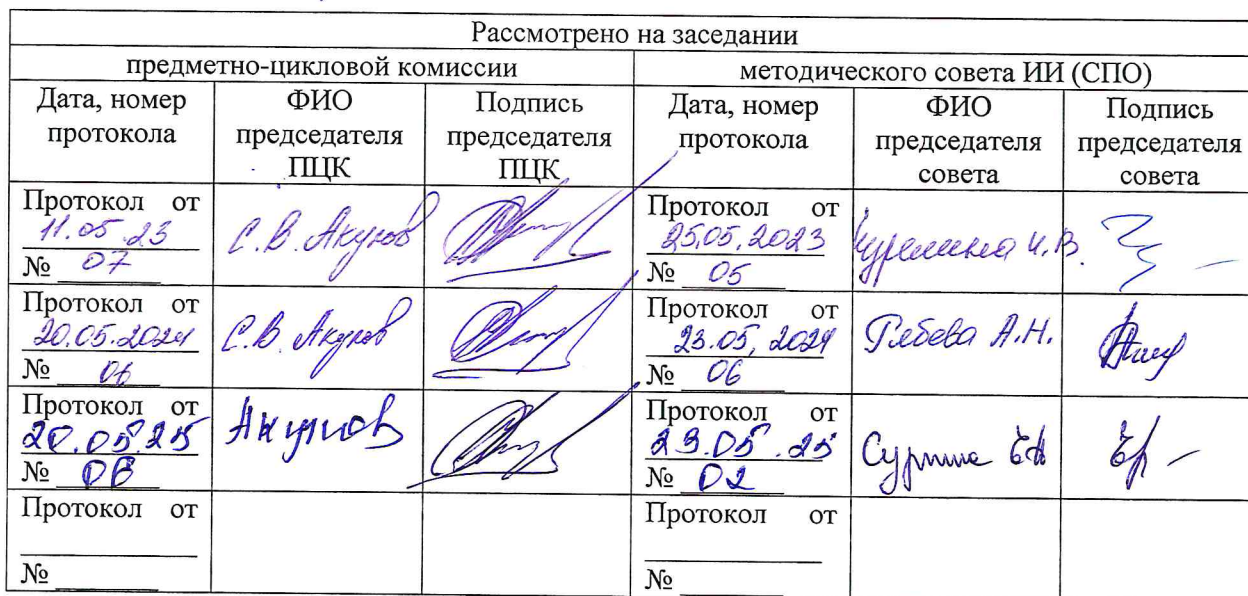 Рассмотрено на заседании
предметно-цикловой комиссии
методического совета ИИ (СПО)
Дата, номер протокола
ФИО председателя ПЦК
Подпись председателя ПЦК
Дата, номер протокола
ФИО председателя совета
Подпись председателя совета
Протокол от
11.05.23
№ 07
С.В. Акулов
Протокол от
25.05.2023
№ 05
И.В.
Протокол от
20.05.2024
№ 06
С.В. Акулов
Протокол от
23.05.2024
№ 06
А.Н.
Протокол от
20.05.25
№
Акулов
Протокол от
29.05.25
№ 02
Протокол от
№
Протокол от
№